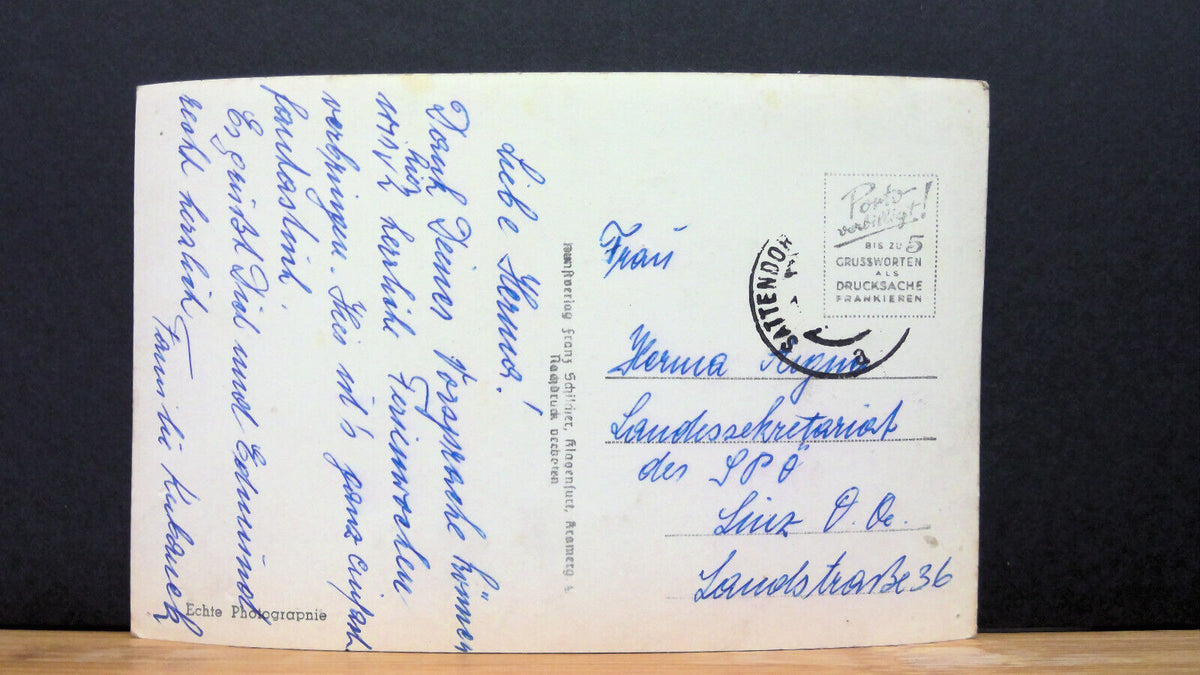 Liebe Herma!
Dank Deiner Vorsprache können
wir hier herrliche Ferienwochen
verbringen. Hier ist's ganz einfach
fantastisch.
Es grüßt Dich und Edmund
recht herzlich Familie
Kunstverlag Franz Schilcher, Klagenfurt, Kramerg
Nachdruck verboten
Echte Photographie
Porto
verbilligt!
BIS ZU 5
GRUSSWORTEN
ALS
DRUCKSACHE
FRANKIEREN
SATTENDOR
a
Frau
Herma
Landessekretariat
der SPÖ
Linz O. Oe.
Landstraße 36